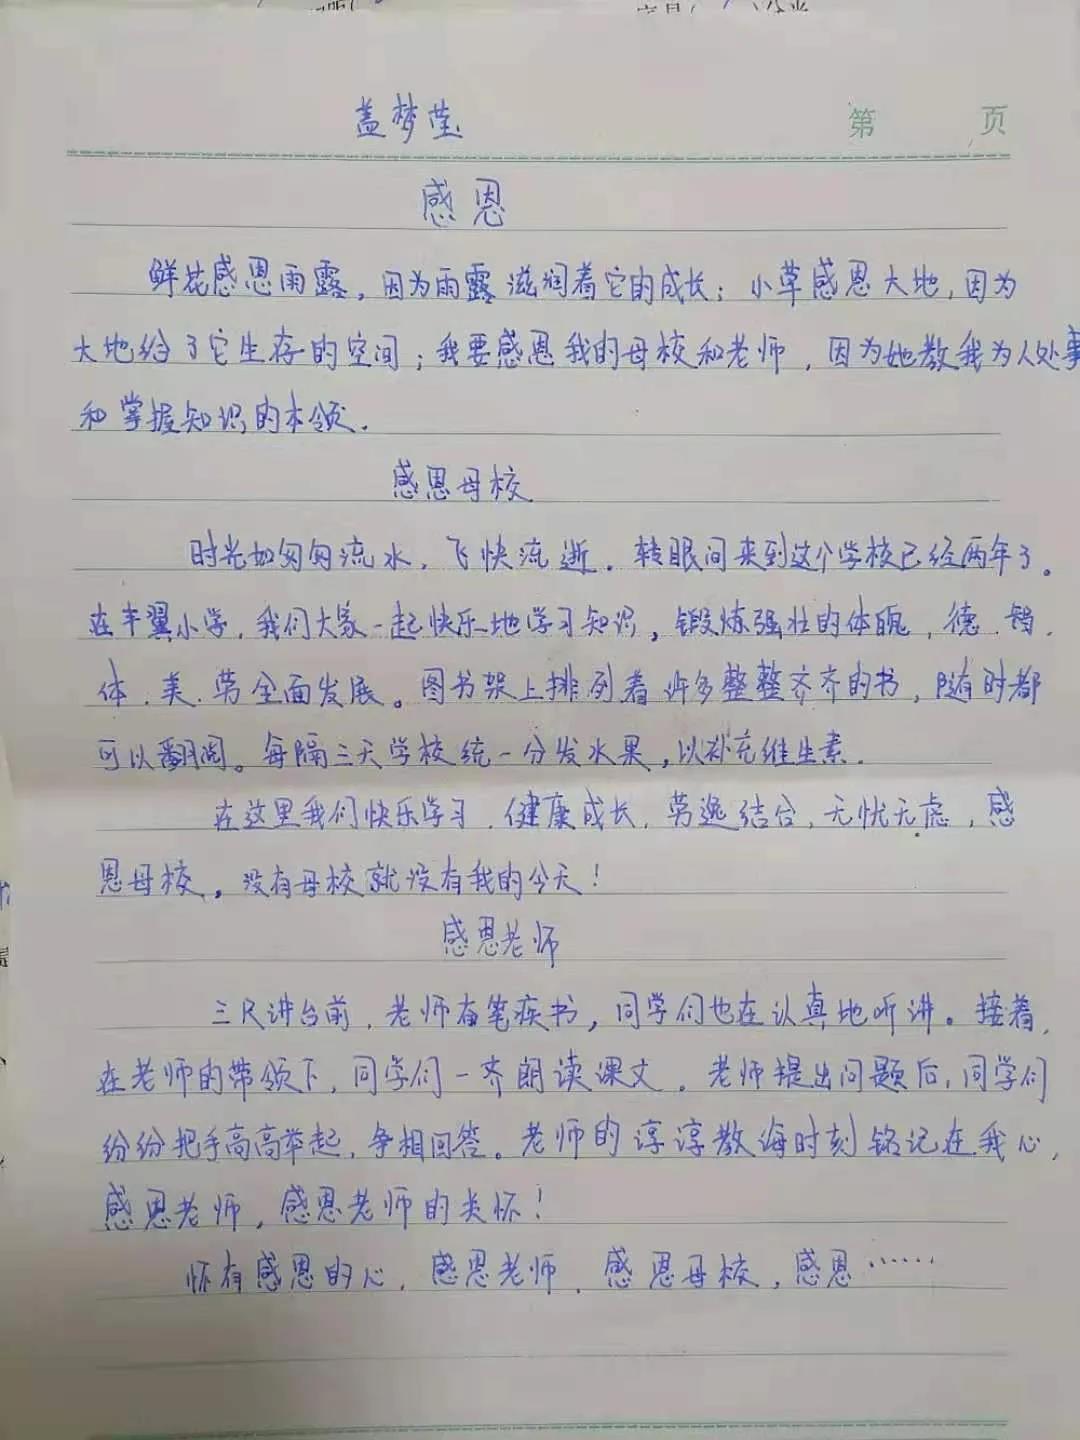 盖梦莹
第 页
感恩
鲜花感恩雨露，因为雨露滋润着它的成长；小草感恩大地，因为
大地给了它生存的空间；我要感恩我的母校和老师，因为她教我为人处事
和掌握知识的本领.
感恩母校
时光如匆匆流水，飞快流逝．转眼间来到这个学校已经两年了。
在丰翼小学，我们大家一起快乐地学习知识，锻炼强壮的体魄，德．智．
体．美．劳全面发展。图书架上排列着许多整整齐齐的书，随时都
可以翻阅。每隔三天学校统一分发水果，以补充维生素．
在这里我们快乐学习．健康成长．劳逸结合，无忧无虑，感
恩母校，没有母校就没有我的今天！
感恩老师
三尺讲台前，老师奋笔疾书，同学们也在认真地听讲。接着，
在老师的带领下，同学们一齐朗读课文．老师提出问题后，同学们
纷纷把手高高举起，争相回答。老师的谆谆教诲时刻铭记在我心，
感恩老师，感恩老师的关怀！
怀有感恩的心，感恩老师．感恩母校，感恩……